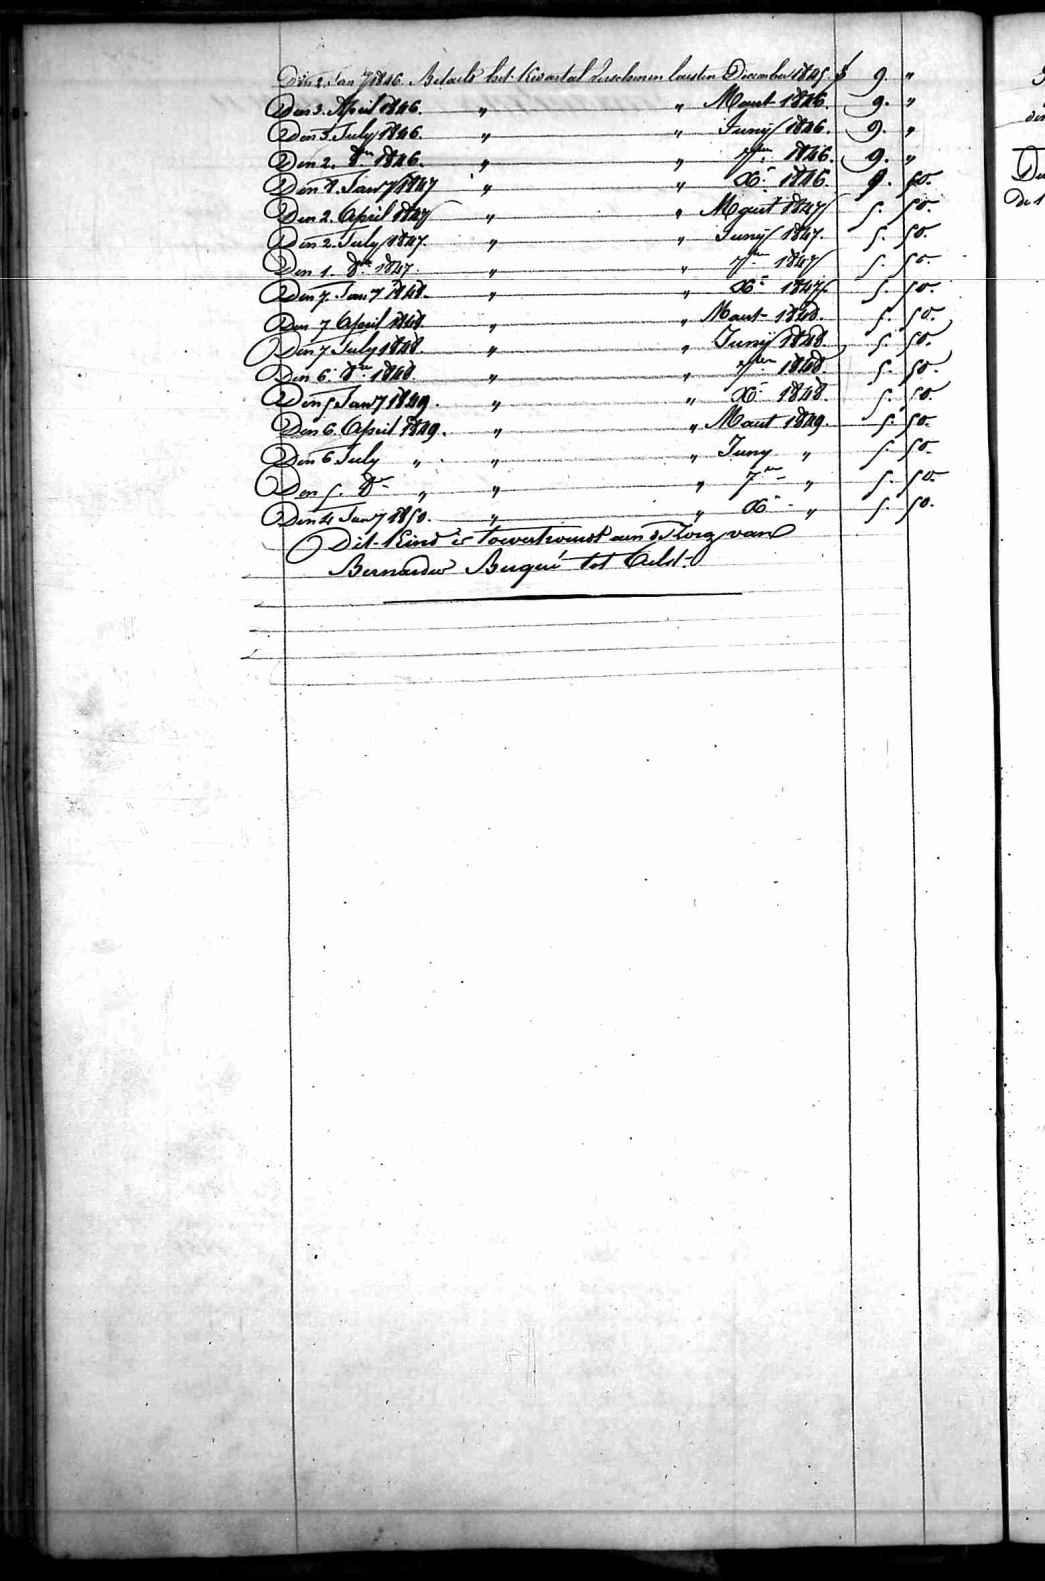 Den 2. Jan 7 1846. Betaelt het Kwartal verschenen laesten December 1845. f 9. "
Den 3. April 1846. " " Maert 1846. 9. "
Den 3. July 1846. " " Junij 1846. 9. "
Den 2. 8er 1846. " " 7ber 1846. 9. "
Den 8. Jany 1847 " " Xr 1846. 9. 50.
Den 2. April 1847 " " Maert 1847 5. 50.
Den 2. July 1847. " " Junij 1847. 5. 50.
Den 1. 8br 1847. " " 7br 1847 5. 50.
Den 7. Jany 1848. " " Xr 1847. 5. 50.
Den 7 April 1848. " " Maert 1848. 5. 50.
Den 7 July 1848. " " Junij 1848. 5. 50.
Den 6. 8br 1848. " " 7ber 1848. 5. 50.
Den 5 Jany 1849. " " Xr 1848. 5. 50.
Den 6. April 1849. " " Maert 1849. 5. 50.
Den 6 July " " " Juny " 5. 50.
Den 5. 8r " " " 7er " 5. 50.
Den 4 Jany 1850. " " Xr " 5. 50.
Dit Kind is toevertrouwt aen de Zorg van
Bernardus tot Aelst.